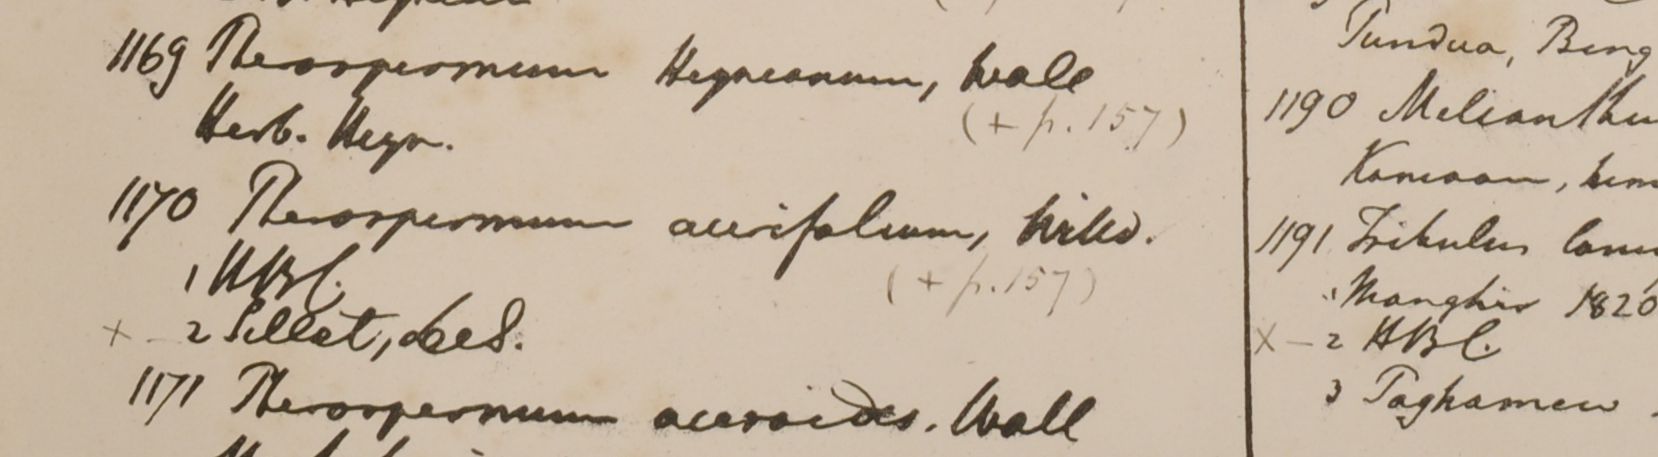 1169 Pterospermum Heyneanum, Wall
(+ p. 157)
Herb. Heyn.
1170 Pterospermum acerifolium, Willd.
(+ p. 157)
1 HBC.
x - 2 Sillet,
1171 Pterospermum aceroides. Wall
Pundua, Beng
1190 Melianthu
Kamaon,
1191 Tribulus lanu
1 Monghir 1820
x - 2 HBC.
3